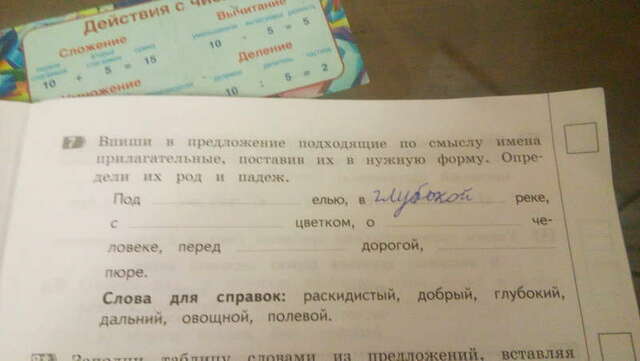 Действия с
Сложение
Вычитание
10 - 5 = 5
10 + 5 = 15
Деление
10 : 5 = 2
7 Впиши в предложение подходящие по смыслу имена
прилагательные, поставив их в нужную форму. Опре-
дели их род и падеж.
Под елью, в глубокой реке,
с цветком, о че-
ловеке, перед дорогой,
пюре.
Слова для справок: раскидистый, добрый, глубокий,
дальний, овощной, полевой.
Заполни таблицу словами из предложений, вставляя